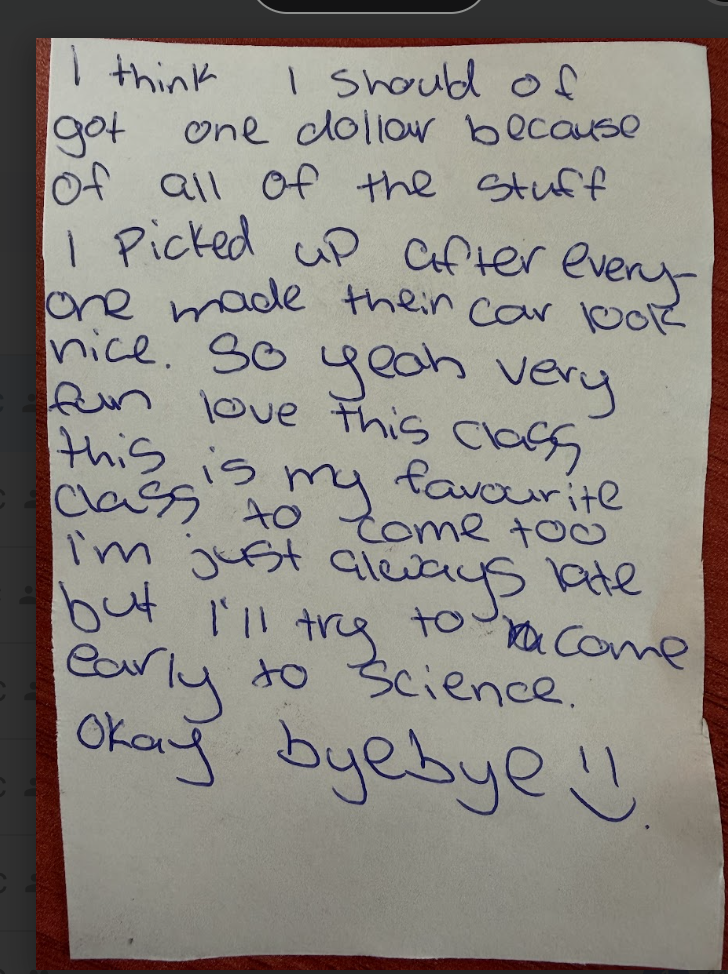 I think I should of
got one dollar because
of all of the stuff
I Picked up after every-
one made their car look
nice. So yeah very
fun love this class
this is my favourite
class to come too
I'm just always late
but I'll try to come
early to science.
Okay byebye